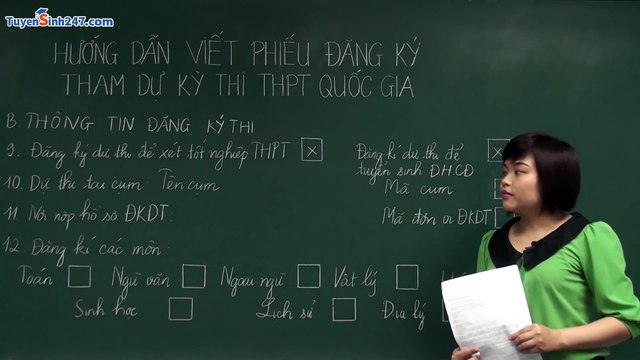 TuyenSinh247.com
HƯỚNG DẪN VIẾT PHIẾU ĐĂNG KÝ
THAM DỰ KỲ THI THPT QUỐC GIA
B. THÔNG TIN ĐĂNG KÝ THI
9. Đăng ký dự thi để xét tốt nghiệp THPT X
Đăng kí dự thi để X
tuyển sinh ĐH.CĐ
10. Dự thi tại cụm: Tên cụm
Mã cụm
11. Nơi nộp hồ sơ ĐKDT:
Mã đơn vị ĐKDT
12. Đăng kí các môn:
Toán Ngữ văn Ngoại ngữ Vật lý
Sinh học Lịch sử Địa lý